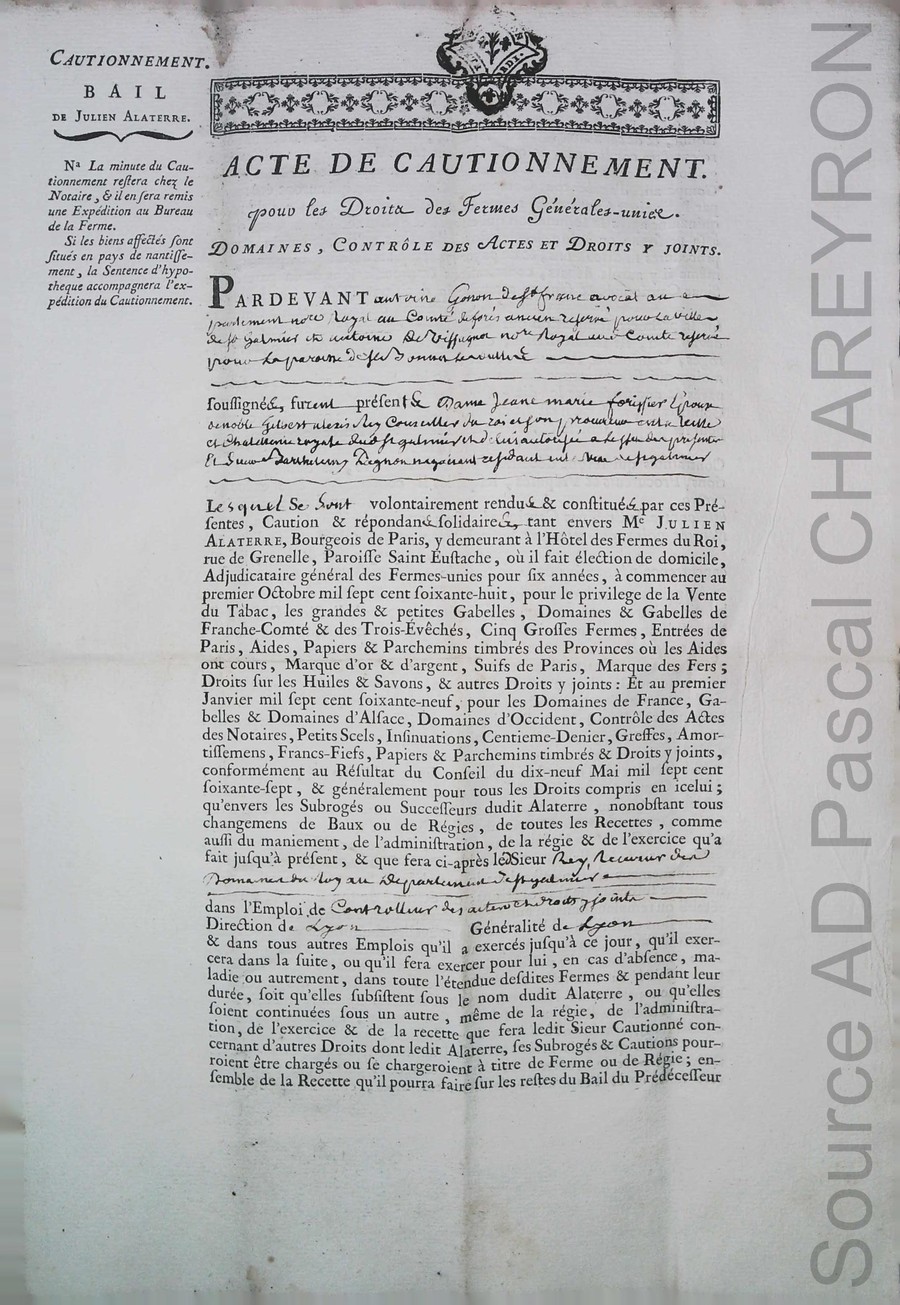 CAUTIONNEMENT.
BAIL
DE JULIEN ALATERRE.
Nª La minute du Cau-
tionnement reſtera chez le
Notaire, & il en ſera remis
une Expédition au Bureau
de la Ferme.
Si les biens affectés ſont
ſitués en pays de nantiſſe-
ment, la Sentence d'hypo-
theque accompagnera l'ex-
pédition du Cautionnement.
ACTE DE CAUTIONNEMENT.
pour les Droits des Fermes Générales-unies.
DOMAINES, CONTRÔLE DES ACTES ET DROITS Y JOINTS.
PARDEVANT antoine Gonon de st fresne avocat au
parlement nore Royal au Comté de forés ancien reservé pour la ville
de st Galmier et antoine nore Royal au Comté reservé
pour la paroisse de
ſouſſignés, furent préſents Dame Jeane marie foriſſier Epouse
de noble Gilbert alexis Rey Conseiller du roi et son procureur en la ville
et Chatellenie royale dud st galmier et de lui autorisée a l'effet des présentes
Et Sieur Barthelemy negociant résidant en la ville de st galmier
Lesquels Se Sont volontairement rendus & conſtitués par ces Pré-
ſentes, Caution & répondans ſolidaires, tant envers Me JULIEN
ALATERRE, Bourgeois de Paris, y demeurant à l'Hôtel des Fermes du Roi,
rue de Grenelle, Paroiſſe Saint Euſtache, où il fait élection de domicile,
Adjudicataire général des Fermes-unies pour ſix années, à commencer au
premier Octobre mil ſept cent ſoixante-huit, pour le privilege de la Vente
du Tabac, les grandes & petites Gabelles, Domaines & Gabelles de
Franche-Comté & des Trois-Évêchés, Cinq Groſſes Fermes, Entrées de
Paris, Aides, Papiers & Parchemins timbrés des Provinces où les Aides
ont cours, Marque d'or & d'argent, Suifs de Paris, Marque des Fers;
Droits ſur les Huiles & Savons, & autres Droits y joints: Et au premier
Janvier mil ſept cent ſoixante-neuf, pour les Domaines de France, Ga-
belles & Domaines d'Alſace, Domaines d'Occident, Contrôle des Actes
des Notaires, Petits Scels, Inſinuations, Centieme-Denier, Greffes, Amor-
tiſſemens, Francs-Fiefs, Papiers & Parchemins timbrés & Droits y joints,
conformément au Réſultat du Conſeil du dix-neuf Mai mil ſept cent
ſoixante-ſept, & généralement pour tous les Droits compris en icelui;
qu'envers les Subrogés ou Succeſſeurs dudit Alaterre, nonobſtant tous
changemens de Baux ou de Régies, de toutes les Recettes, comme
auſſi du maniement, de l'adminiſtration, de la régie & de l'exercice qu'a
fait juſqu'à préſent, & que fera ci-après ledSieur Rey, Receveur des
Domaines du Roy au Departement de st galmier
dans l'Emploi de Controlleur des actes et droits y joints
Direction de Lyon Généralité de Lyon
& dans tous autres Emplois qu'il a exercés juſqu'à ce jour, qu'il exer-
cera dans la ſuite, ou qu'il fera exercer pour lui, en cas d'abſence, ma-
ladie ou autrement, dans toute l'étendue deſdites Fermes & pendant leur
durée, ſoit qu'elles ſubſiſtent ſous le nom dudit Alaterre, ou qu'elles
ſoient continuées ſous un autre, même de la régie, de l'adminiſtra-
tion, de l'exercice & de la recette que fera ledit Sieur Cautionné con-
cernant d'autres Droits dont ledit Alaterre, ſes Subrogés & Cautions pour-
roient être chargés ou ſe chargeroient à titre de Ferme ou de Régie; en-
ſemble de la Recette qu'il pourra faire ſur les reſtes du Bail du Prédéceſſeur
Source AD Pascal CHAREYRON